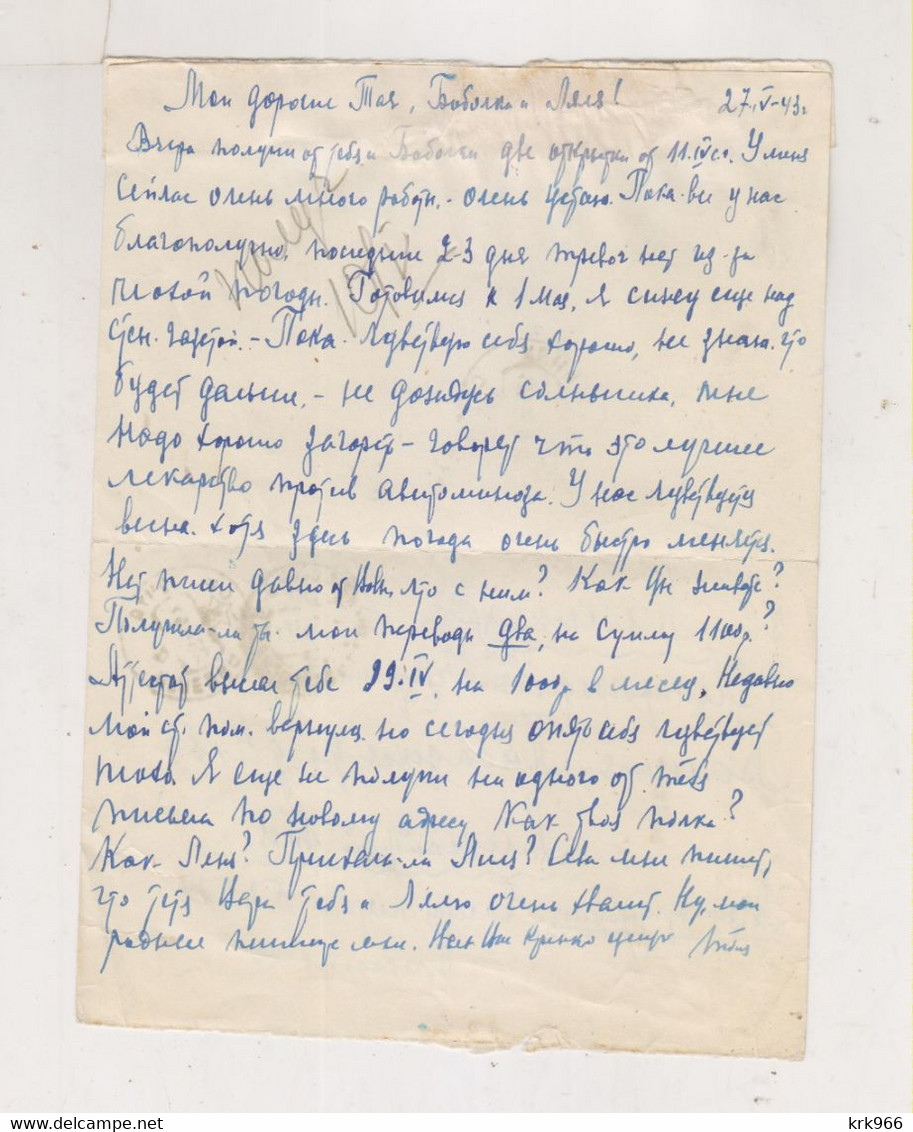 Мои дорогие Тая, Боболка и Ляля! 27.IV-43г.
Вчера получил от тебя и две открытки от 11.IV с.г. У меня
сейчас очень много работы. - очень устаю. Пока все у нас
благополучно, последние 2-3 дня тревог нет из-за
плохой погоды. Готовимся к 1 мая, я сижу еще над
стен. газетой. - Пока чувствую себя хорошо, не знаю что
будет дальше, - не дождусь солнышка, мне
надо хорошо загореть - говорят что это лучшее
лекарство против авитаминоза. У нас чувствуется
весна, хотя здесь погода очень быстро меняется.
Нет писем давно от что с ним? Как живете?
Получила-ли ты мои переводы два, на сумму 1100р?
Аттестат выслал тебе 22.IV, на 1000р в месяц. Недавно
мой ст. пом. вернулся но сегодня опять себя чувствует
плохо. Я еще не получил ни одного от тебя
письма по новому адресу. Как твоя
Как Леня? Приехала-ли Люся? Сева мне пишет,
что тетя Вера тебя и Лялю очень хвалит. Ну, мои
родные пишите мне. Всех Вас крепко целую
krk966